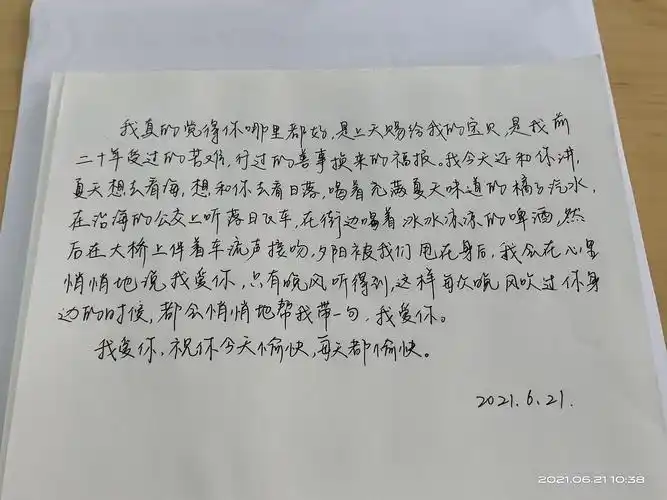 我真的觉得你哪里都好,是上天赐给我的宝贝,是我前
二十年受过的苦难,行过的善事换来的福报。我今天还和你讲,
夏天想去看海,想和你去看日落,喝着充满夏天味道的橘子汽水,
在沿海的公交上听落日飞车,在街边喝着冰冰凉凉的啤酒,然
后在大桥上伴着车流声接吻,夕阳被我们甩在身后,我会在心里
悄悄地说我爱你,只有晚风听得到,这样每次晚风吹过你身
边的时候,都会悄悄地帮我带一句,我爱你。
我爱你,祝你今天愉快,每天都愉快。
2021.6.21.
2021.06.21 10:38